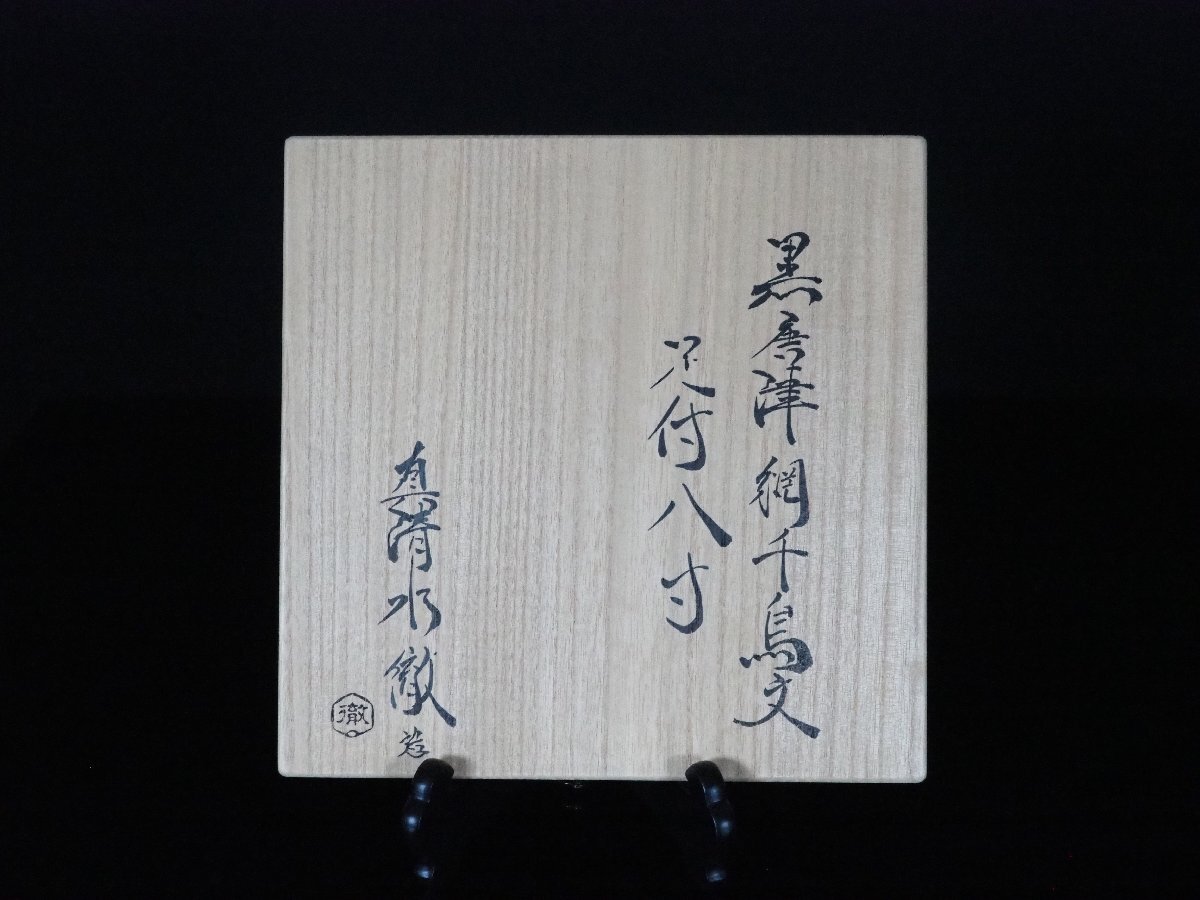 黒唐津網千鳥文
足付八寸
真清水徹造
徹